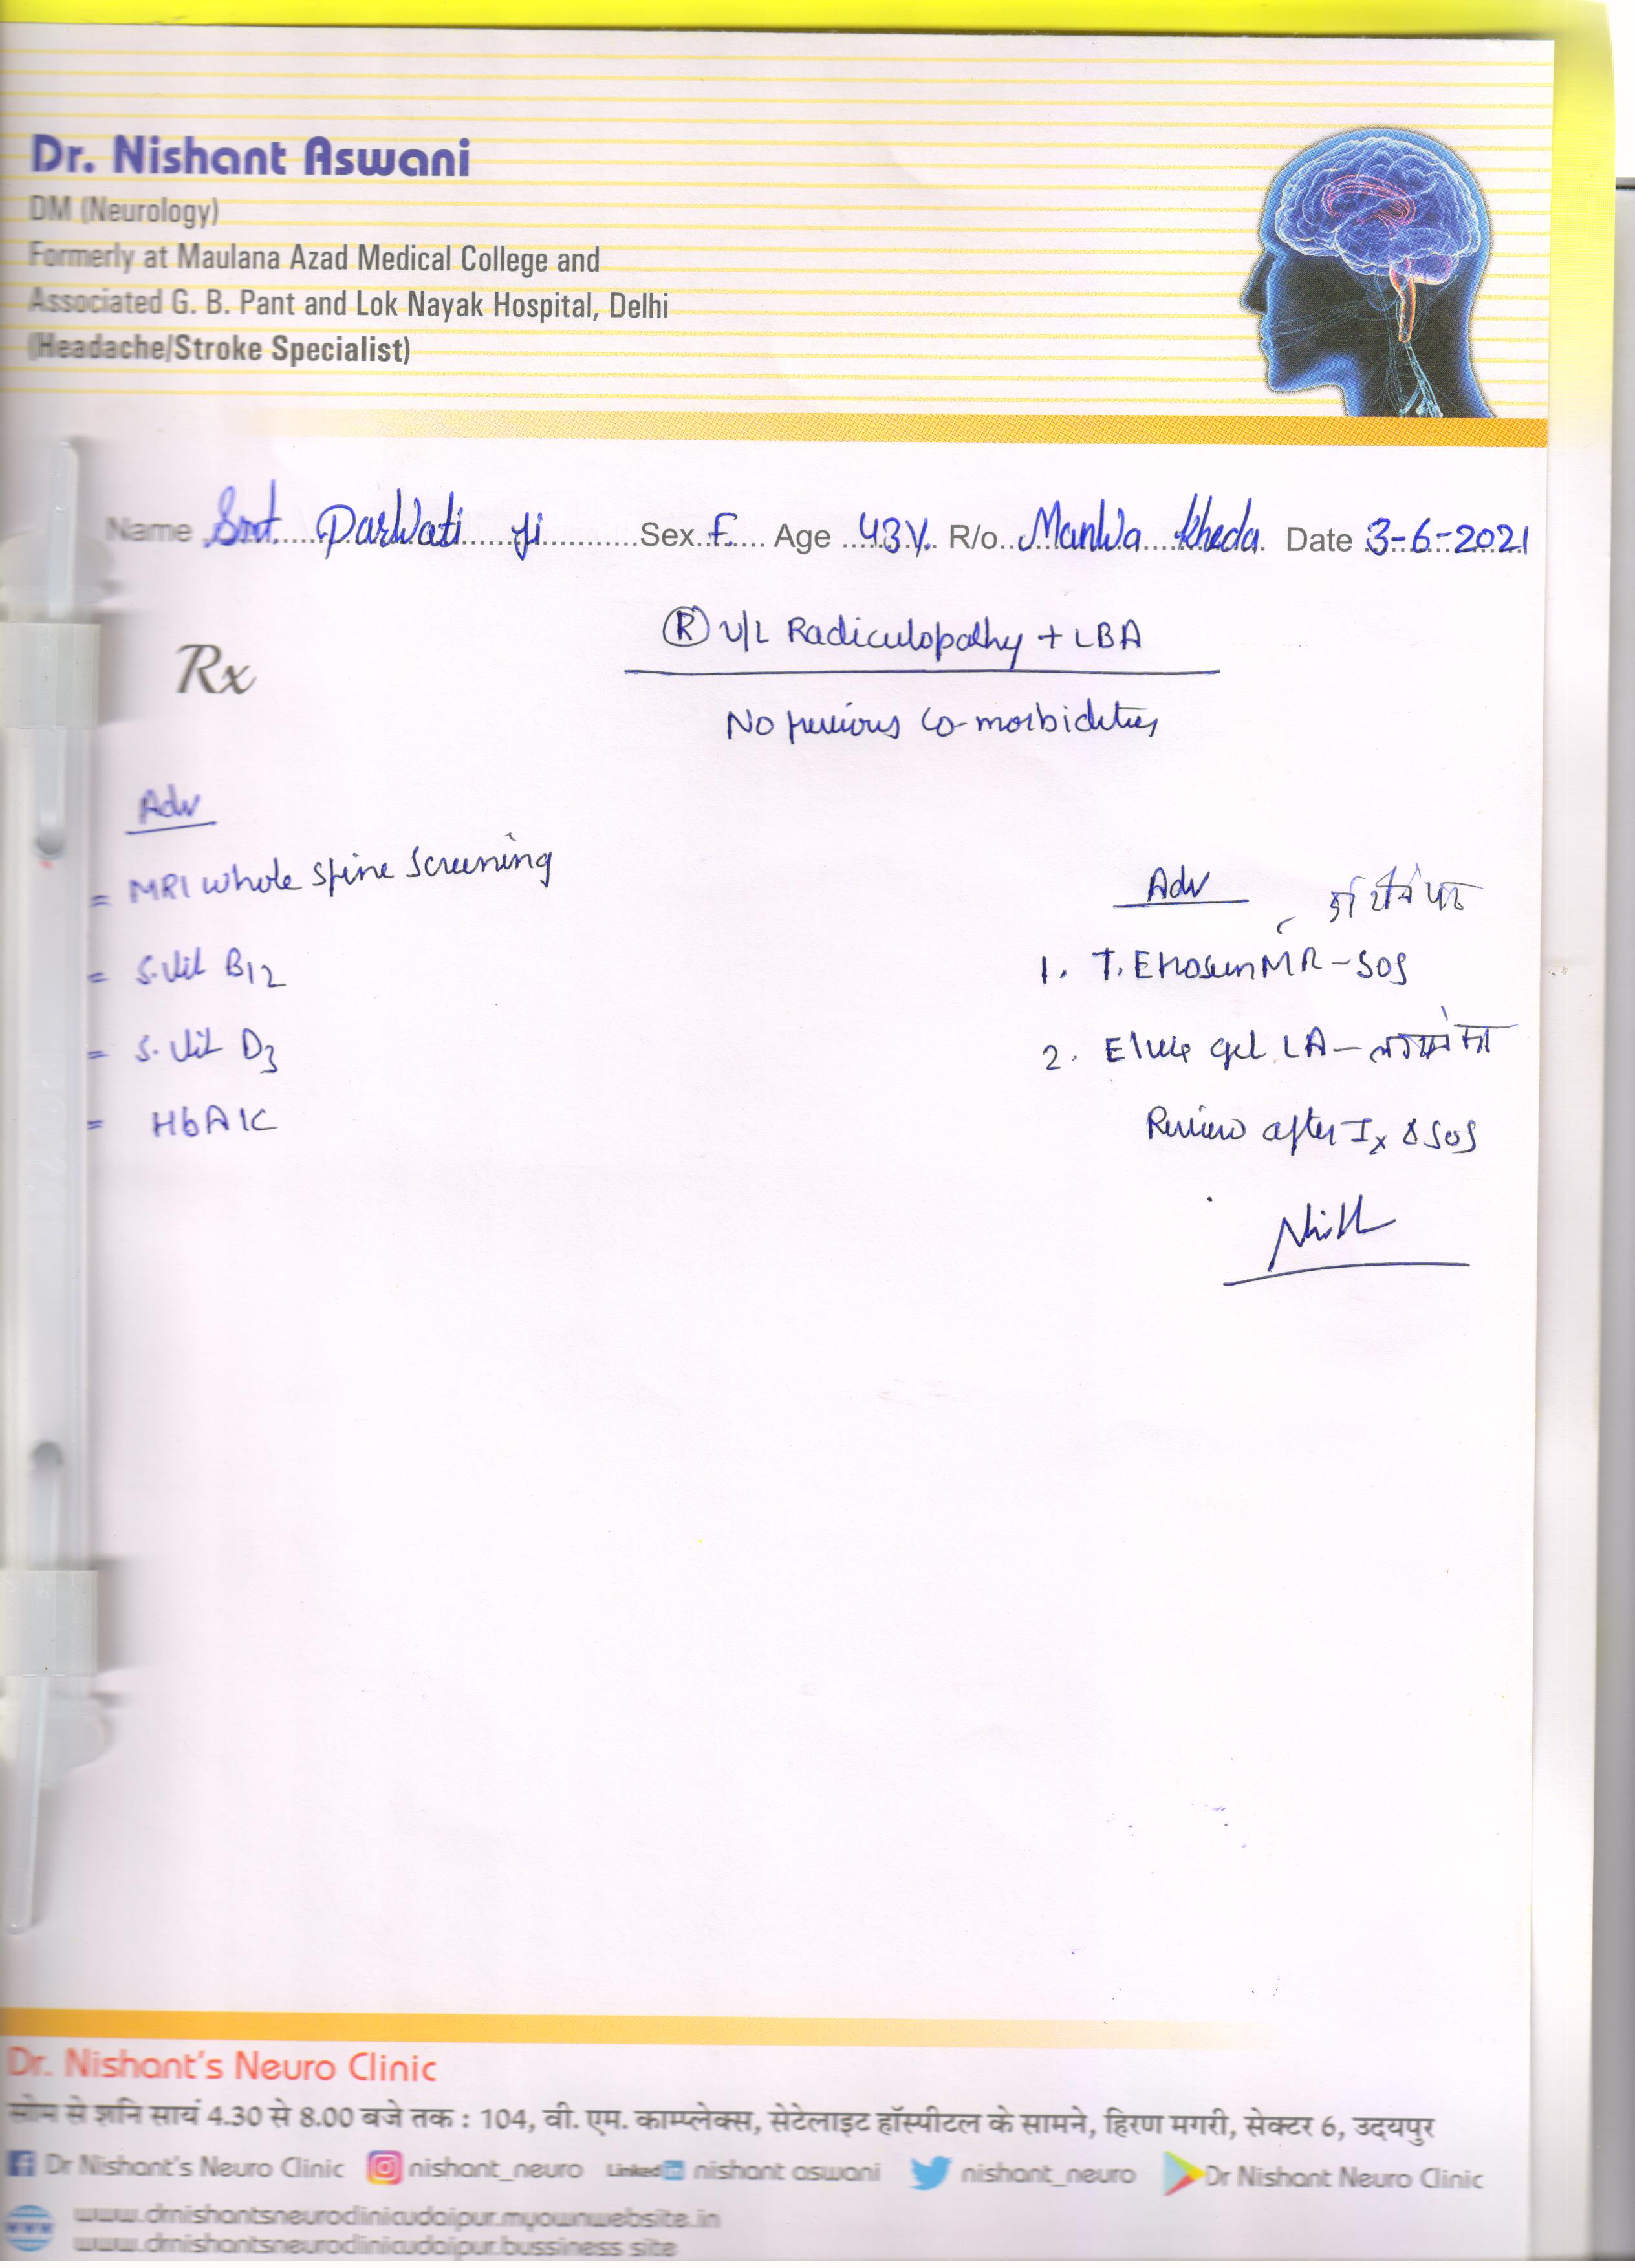 Dr. Nishant Aswani
DM (Neurology)
Formerly at Maulana Azad Medical College and
Associated G. B. Pant and Lok Nayak Hospital, Delhi
(Headache/Stroke Specialist)
Name Smt. Parwati Ji Sex F. Age 43Y. R/o. Manwa Kheda Date 3-6-2021
Rx
Ⓡ U/L Radiculopathy + LBA
No previous Co-morbidities
Adv
= MRI whole spine screening
= S. Vit B12
= S. Vit D3
= HbA1C
Adv
1. T. MR - SOS
2. gel LA -
Review after Ix & SOS
Dr. Nishant's Neuro Clinic
सोम से शनि सायं 4.30 से 8.00 बजे तक : 104, वी. एम. काम्प्लेक्स, सेटेलाइट हॉस्पीटल के सामने, हिरण मगरी, सेक्टर 6, उदयपुर
Dr Nishant's Neuro Clinic nishant_neuro Linkedin nishant aswani nishant_neuro Dr Nishant Neuro Clinic
www www.drnishantsneuroclinicudaipur.myownwebsite.in
www.drnishantsneuroclinicudaipur.bussiness site